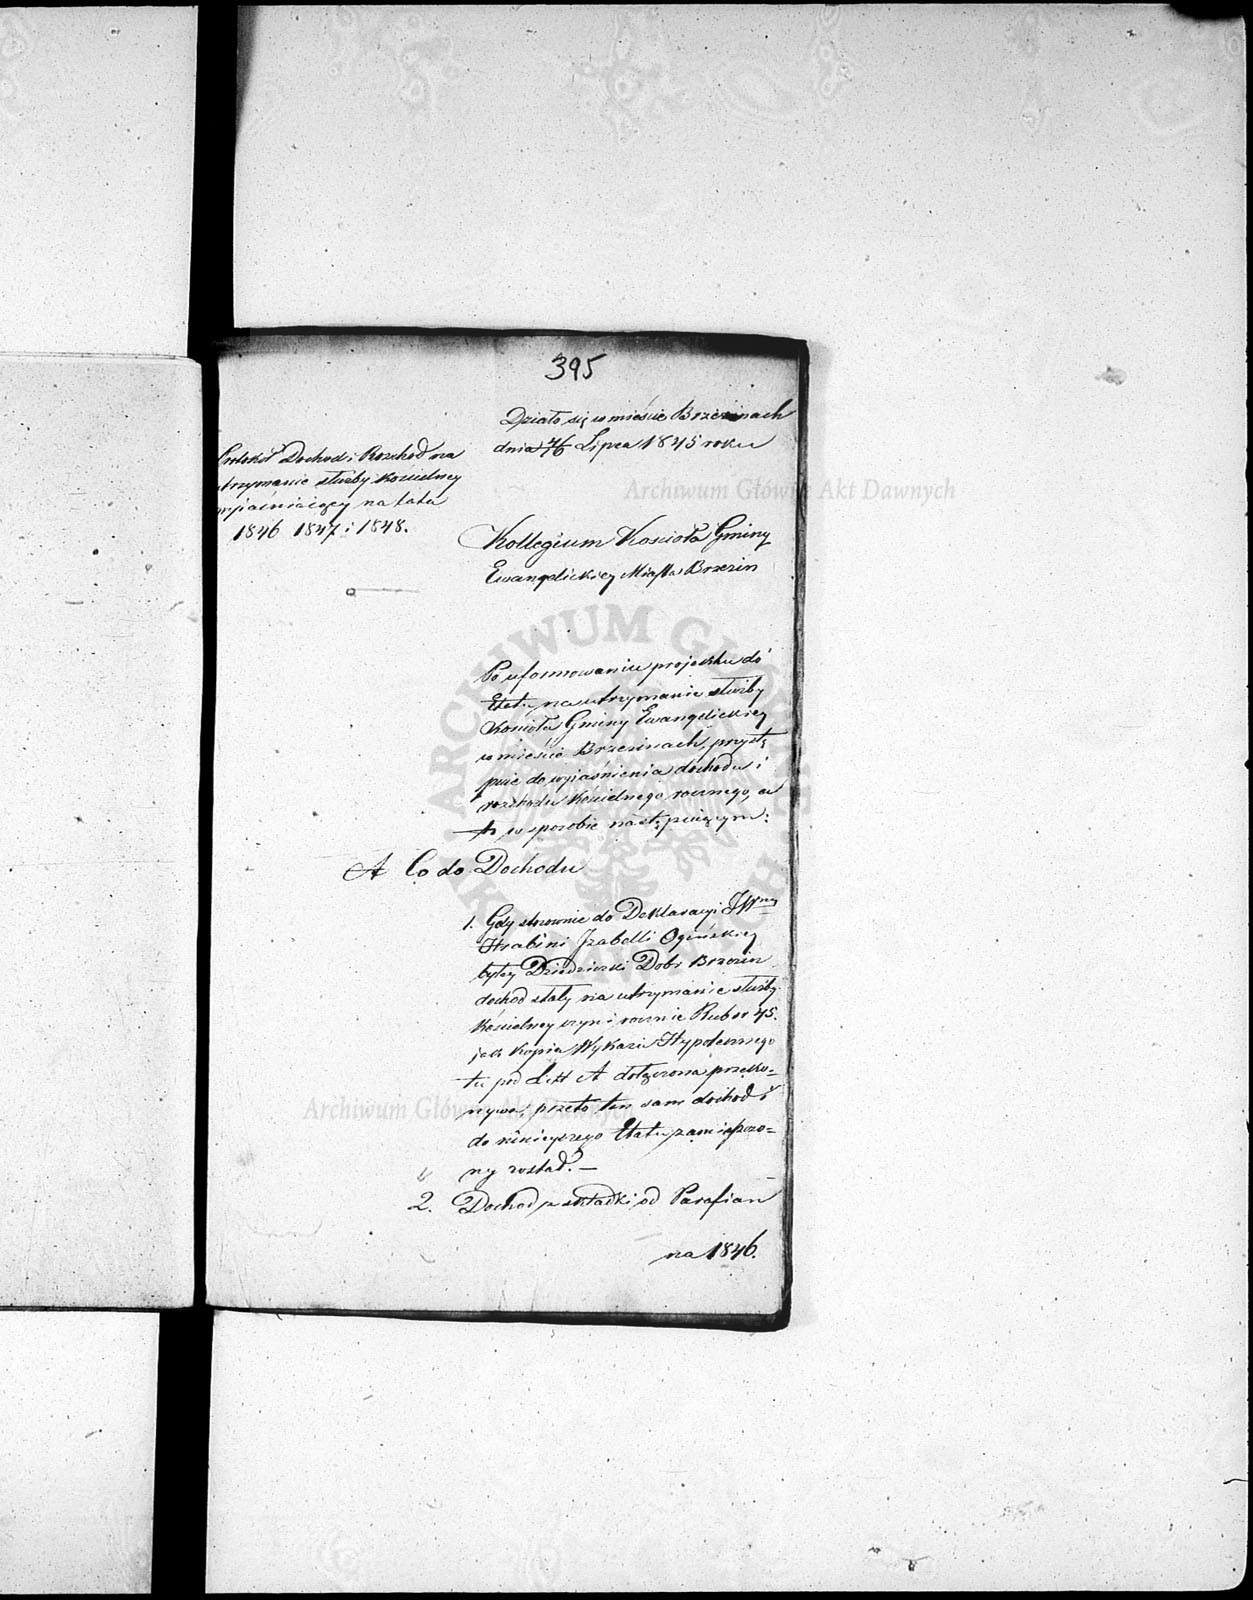 395
Działo się w mieście Brzezinach
dnia 4/16 Lipca 1845 roku
Protokół Dochod i Rozchod na
utrzymanie służby kościelney
wyjaśniaiący na lata
1846 1847 i 1848.
Kollegium Kościoła Gminy
Ewangelickiey Miasta Brzezin
Po uformowaniu projecktu do
Etatu na utrzymanie służby
Kościoła Gminy Ewangelickiey
w mieście Brzezinach, przystę
puie do wyiaśnienia dochodu i
rozchodu kościelnego rocznego, a
to w sposobie następuiącym:
A Co do Dochodu
1. Gdy stosownie do Deklaracyi JW
Hrabini Izabelli Ogińskiey
byłey Dziedziczki Dobr Brzezin
dochod stały na utrzymanie służby
kościelney czyni rocznie Rubsr 45.
jak kopia Wykazu Hypotecznego
tu pod Litt A dołączona przeko-
nywa, przeto ten sam dochod i
do ninieyszego Etatu zamieszczo-
ny został. —
2. Dochod z składki od Parafian
na 1846.
Archiwum Główne Akt Dawnych
Archiwum Główne Akt Dawnych